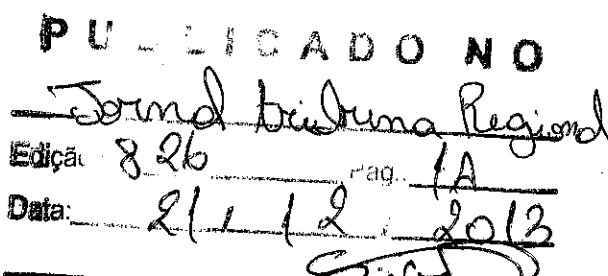 PUBLICADO NO
Jornal tribuna Regional
Edição 826 Pag. 1A
Data: 21 / 12 / 2013